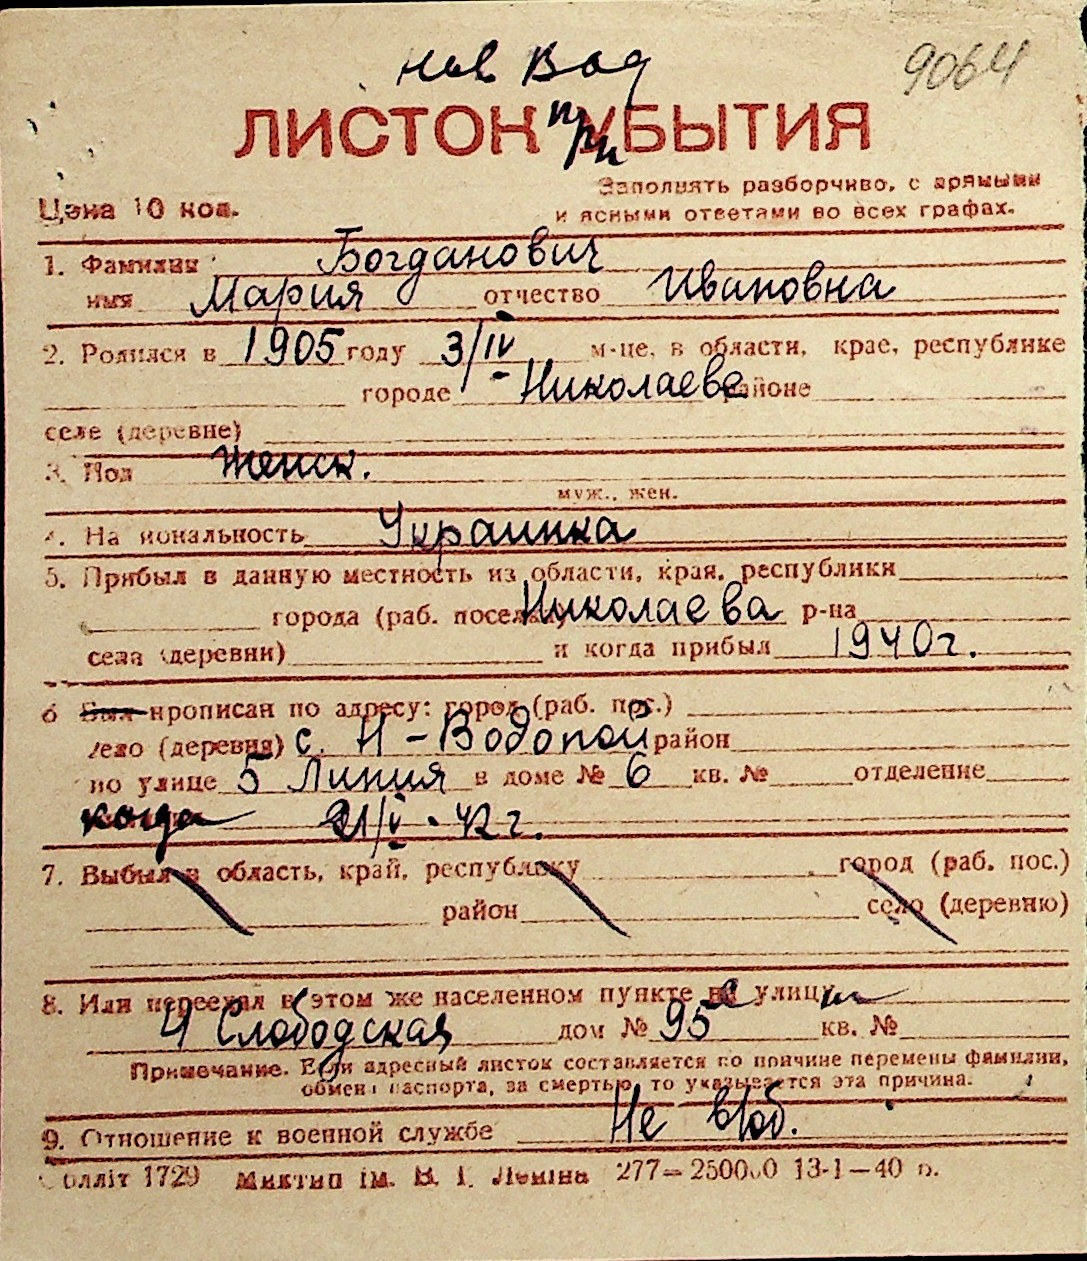 Нов Вод
9064
ЛИСТОК при УБЫТИЯ
Заполнять разборчиво, с прямыми
Цена 10 коп.
и ясными ответами во всех графах.
1. Фамилия Богданович
имя Мария отчество Ивановна
2. Родился в 1905 году 3/IV м-це, в области, крае, республике
городе Николаеве районе
селе (деревне)
3. Пол Женск.
муж., жен.
4. Национальность Украинка
5. Прибыл в данную местность из области, края, республики
города (раб. поселка) Николаева р-на
села (деревни) и когда прибыл 1940г.
6 Был прописан по адресу: город (раб. пос.)
село (деревня) с. Н-Водопой район
по улице 5 Линия в доме № 6 кв. № отделение
когда 21/V-42 г.
7. Выбыл в область, край, республику город (раб. пос.)
район село (деревню)
8. Или переехал в этом же населенном пункте с улицы
4 Слободская дом № 95 кв. №
Примечание. Если адресный листок составляется по причине перемены фамилии,
обмена паспорта, за смертью, то указывается эта причина.
9. Отношение к военной службе Не в/об.
Облліт 1729 Миктип ім. В. І. Леніна 277—250000 13-1—40 р.